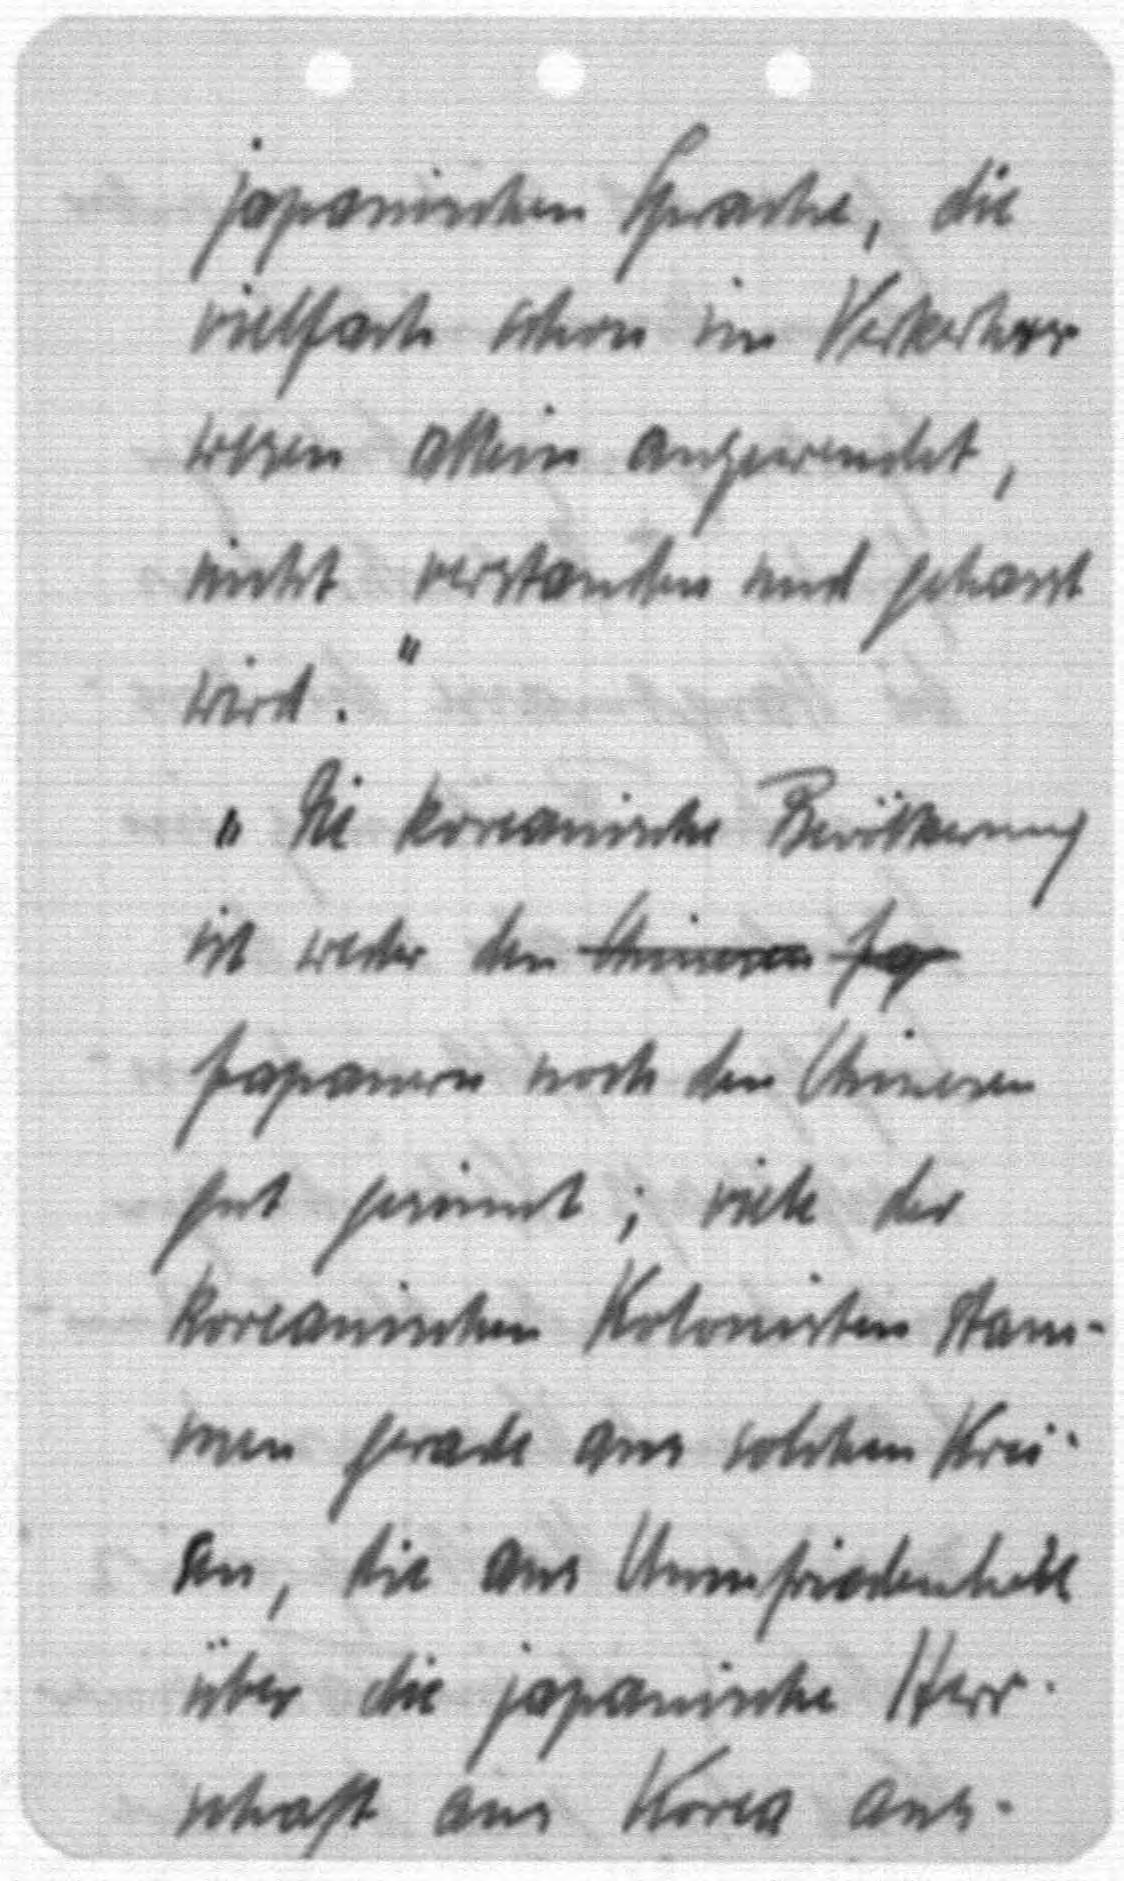 japanischen Sprache, die
vielfach schon im Verkehrs
wesen allein angewendet,
nicht verstanden und gehasst
wird."
" Die koreanische Bevölkerung
ist weder den Chinesen Jap
Japanern noch den Chinesen
gut gesinnt; viele der
koreanischen Kolonisten stam-
men gerade aus solchen Krei-
sen, die aus Unzufriedenheit
über die japanische Herr-
schaft aus Korea aus-